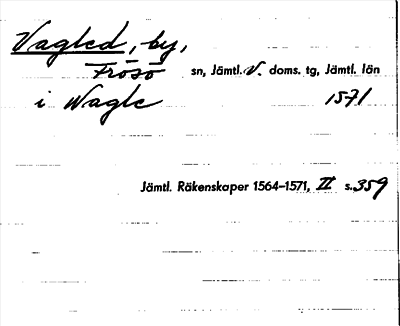 Vagled, by,
Frösö sn, Jämtl. V. doms. tg, Jämtl. län
i Wagle 1571
Jämtl. Räkenskaper 1564-1571, II s. 359